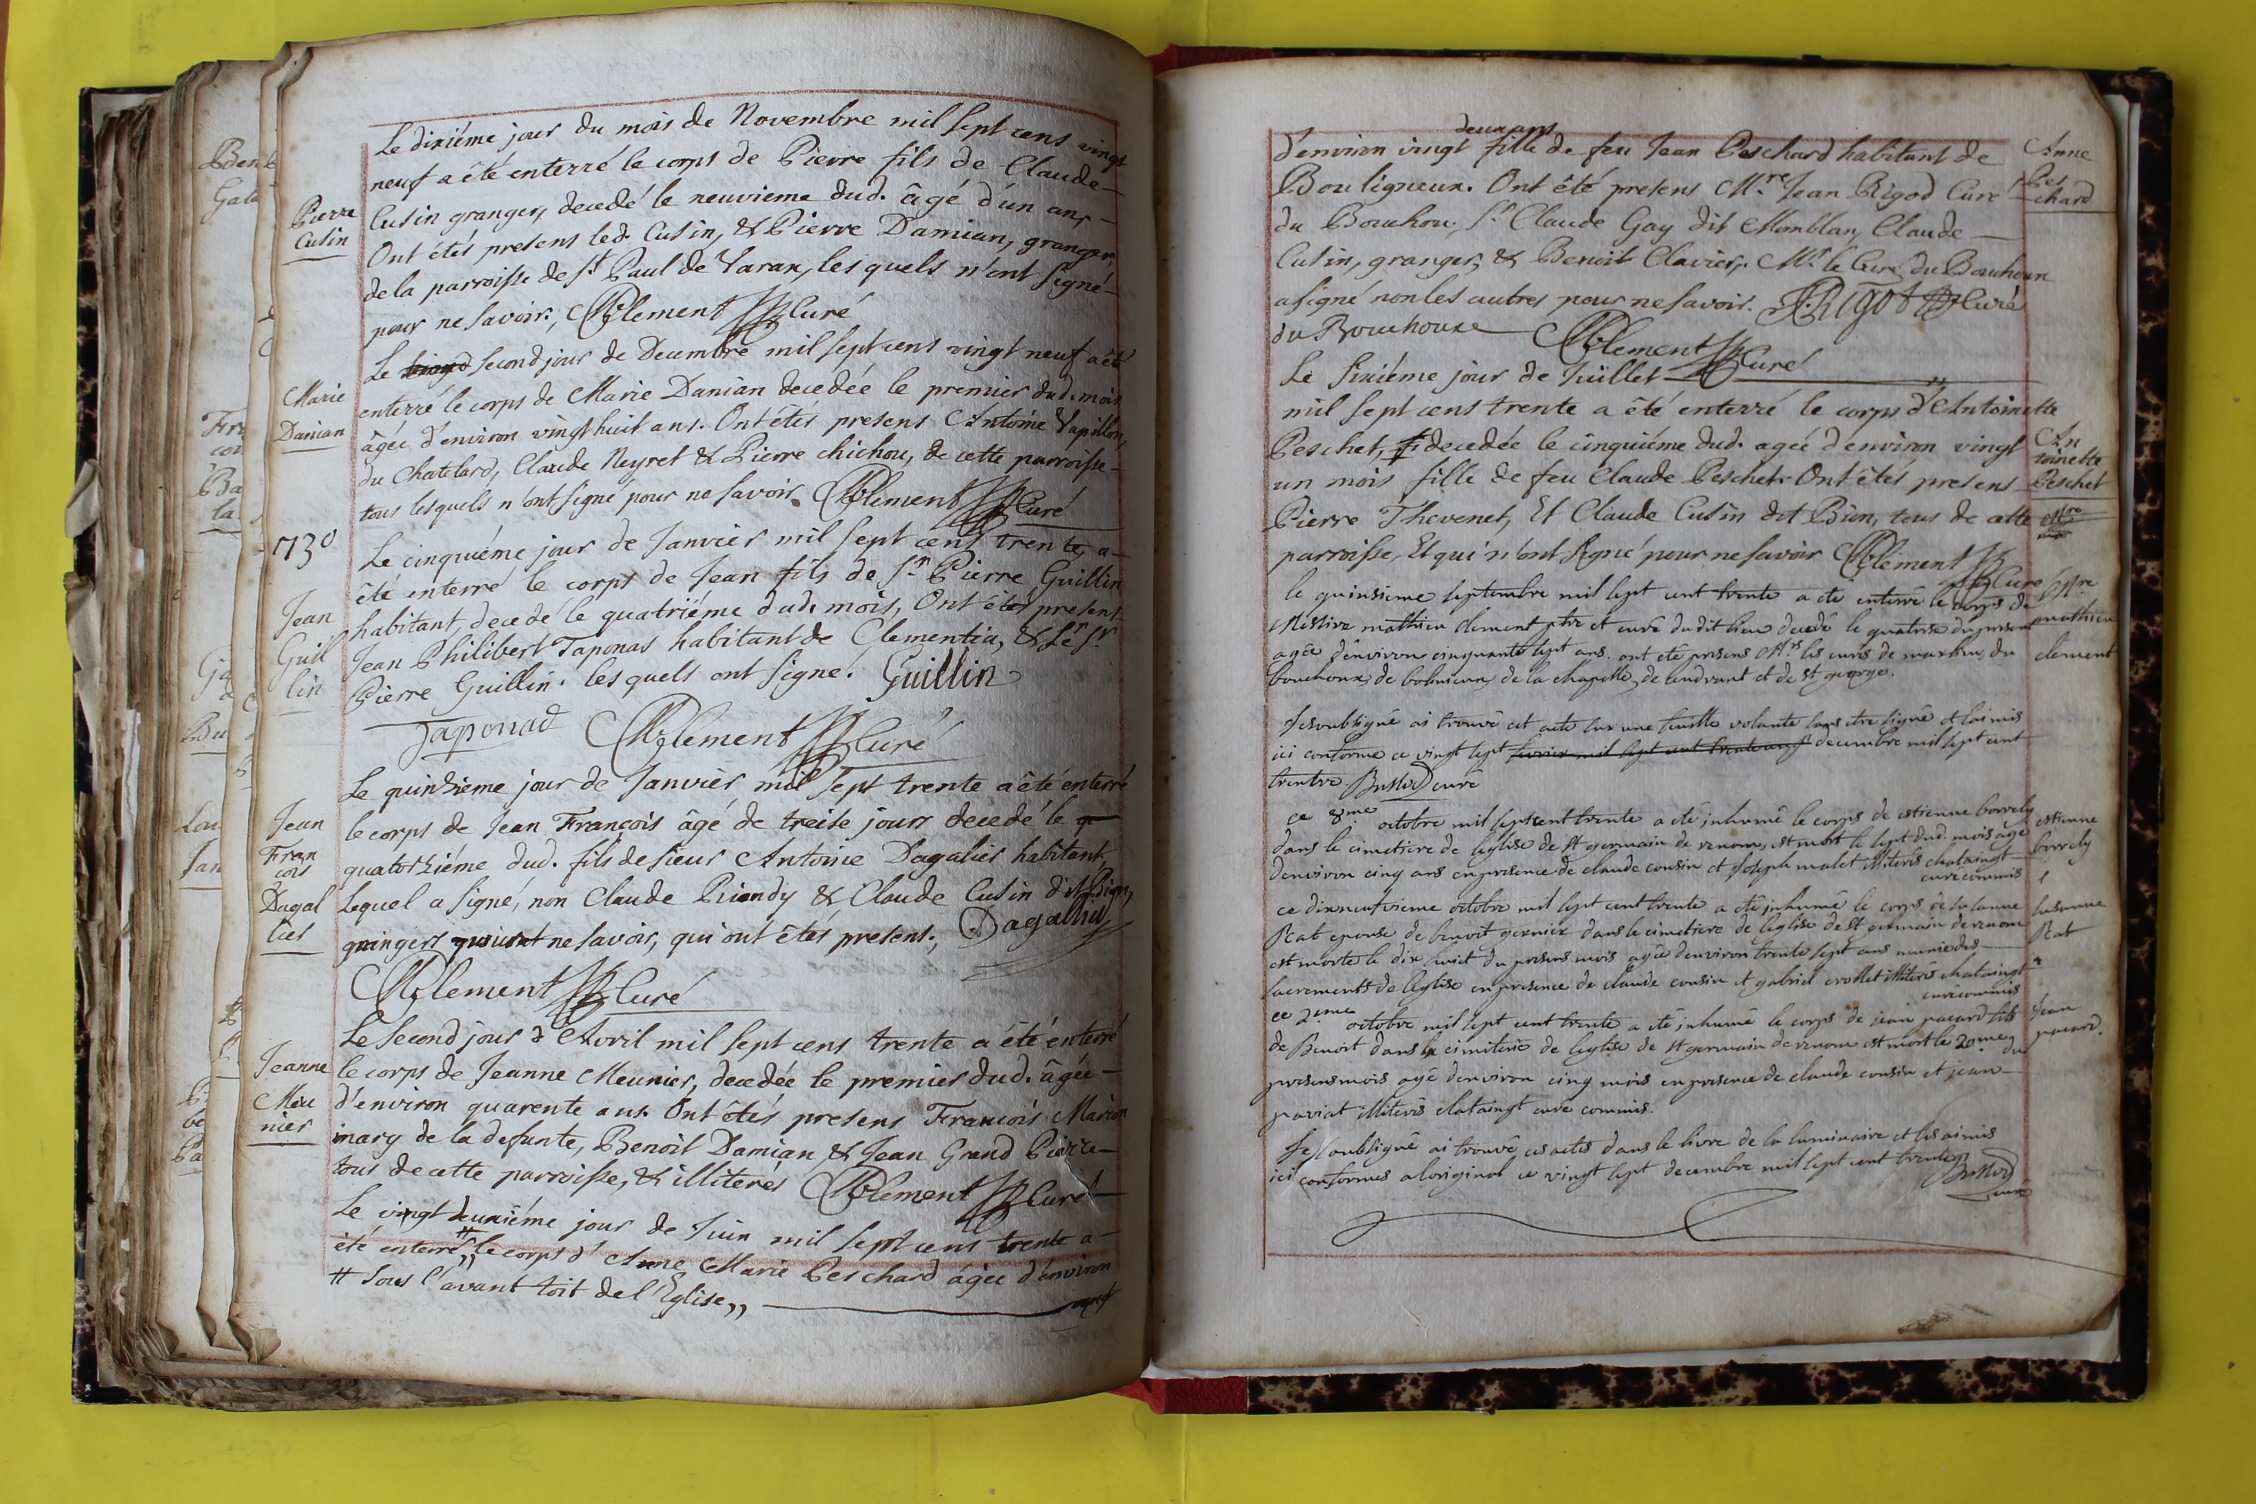 Le dixiéme jour du mois de Novembre mil sept cens vingt
neuf a êté enterré le corps de Pierre fils de Claude
Pierre
Cusin
Cusin granger, decedé le neuvieme dud. âgé d'un an,
Ont êtés presens led. Cusin, & Pierre Damian, granger,
de la parroisse de St. Paul de Varax, les quels n'ont signé
pour ne savoir, Clement Curé
Le second jour de Decembre mil sept cens vingt neuf a êté
Marie
Danian
enterré le corps de Marie Danian decedée le premier dud. mois
âgée d'environ vingt huit ans. Ont êtés presens Antoine Vapillon,
du Chatelard, Claude Neyret & Pierre chichou, de cette parroisse
tous lesquels n'ont signé pour ne savoir. Clement Curé
1730
Le cinquiéme jour de Janvier mil sept cens trente, a
êté enterré le corps de Jean fils de Sr. Pierre Guillin
Jean
Guil
lin
habitant, decedé le quatriéme dud. mois, Ont êtés presens
Jean Philibert Taponas habitant de Clementia, & Le Sr.
Pierre Guillin. lesquels ont signe. Guillin
Taponad Clement Curé
Le quinziéme jour de Janvier mil sept trente a êté enterré
Jean
Fran
cois
Dagal
lier
le corps de Jean François âgé de treise jours decedé le
quatorziéme dud. fils de sieur Antoine Dagalier habitant,
Lequel a signé, non Claude Priondy & Claude Cusin dit Bion,
grangers ne savoir, qui ont êtés presens. Dagallier
Clement Curé
Le second jour d'Avril mil sept cens trente a êté enterré
Jeanne
Meu
nier
le corps de Jeanne Meunier, decedée le premier dud. âgée
d'environ quarente ans. Ont êtés presens François Marion
mary de la defunte, Benoit Damian & Jean Grand Pierre
tous de cette parroisse, & illiterés Clement Curé
Le vingt deuxiéme jour de Juin mil sept cens trente a
êté enterré # le corps d'Anne Marie Peschard agée d'environ
# sous l'avant toit de l'Eglise,, vingt
d'environ vingt deux ans fille de feu Jean Peschard habitant de
Anne
Pes
chard
Bouligneux. Ont êté presens Mre. Jean Rigod Curé
du Bouchou, Sr. Claude Gay dit Momblan, Claude
Cusin, granger, & Benoit Clavier. Mr. le Curé du Bouchoux
a signé non les autres pour ne savoir. Rigot Curé
du Bouchoux Clement Curé
Le sixiéme jour de Juillet
mil sept cens trente a êté enterré le corps d'Antoinette
An
toinette
Peschet
Peschet, decedée le cinquiéme dud. agée d'environ vingt
un mois fille de feu Claude Peschet. Ont êtés presens
Pierre Thevenet, Et Claude Cusin dit Bion, tous de cette
parroisse, Et qui n'ont signé pour ne savoir Clement Curé
le quinsieme septembre mil sept cent trente a ete enterré le corps de
Mre.
mathieu
clement
Messire mathieu clement ptre et curé dudit lieu decedé le quatorse du present
agée d'environ cinquante sept ans. ont eté presens Mrs les curés de marlieu, du
bouchoux, de de la chapelle, de condrant et de st george.
Je soubsigné ai trouvé cet acte sur une feuille volante sans etre signé et l'ai mis
ici conforme ce vingt sept fevrier mil sept cent trente neuf decembre mil sept cent
trente curé
ce 8me octobre mil sept cent trente a été inhumé le corps de estienne borrely
estienne
borrely
dans le cimetiere de l'eglise de st germain de renom, est mort le sept dud. mois agé
d'environ cinq ans en presence de claude cousin et Joseph malet illiterés chataingt
curé commis
ce dixneufvieme octobre mil sept cent trente a eté inhumé le corps de susanne
susanne
Rat
Rat epouse de benoit gernier dans le cimetiere de l'eglise de st germain de renom
est morte le dix huit du presens mois agée d'environ trente sept ans munie des
sacrements de l'eglise en presence de claude cousin et gabriel crollet illiterés chataingt
curé commis
ce 2eme octobre mil sept cent trente a eté inhumé le corps de jean pacard fils
Jean
pacard.
de Benoit dans le cimitere de l'eglise de st germain de renom est mort le 20me du
presens mois agé d'environ cinq mois en presence de claude cousin et jean
paviat illiterés chataingt curé commis.
Je soubsigné ai trouvé ces actes dans le livre de la luminaire et les ai mis
ici conformes a l'original ce vingt sept decembre mil sept cent trente
curé